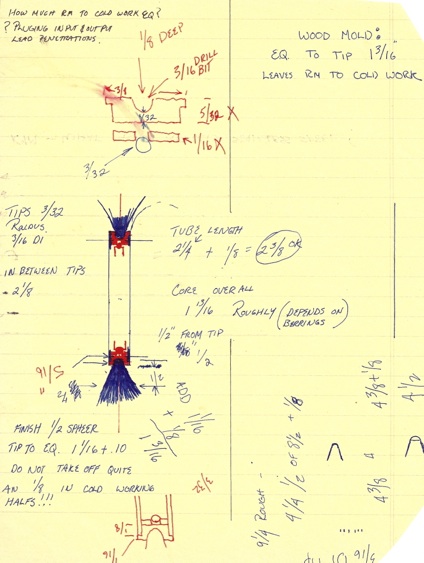 HOW MUCH RM TO COLD WORK EQ?
? PLUGING INPUT & OUTPUT
LEAD PENETRATIONS.
1/8 DEEP
3/16 DRILL
BIT
3/4
1/32
5/32 X
1/16 X
3/32
WOOD MOLD:
EQ. TO TIP 1 3/16
LEAVES RM TO COLD WORK
TIPS 3/32
RAIDUS
3/16 DI
IN BETWEEN TIPS
- 2 1/8
TUBE LENGTH
2 1/4 + 1/8 = 2 3/8 OR
CORE OVERALL
1 13/16 ROUGHLY (DEPENDS ON
BERRINGS)
1/2" FROM TIP
1/2
5/16"
2 1/4
1/2
ADD
1/16
1/8
X
FINISH 1/2 SPHEER
TIP TO EQ. 1 1/16 + .10
DO NOT TAKE OFF QUITE
AN 1/8 IN COLD WORKING
HALFS!!!
3/32
1/8
1/16
9 1/4 ROUGH -
4 1/4 1/2 OF 8 1/2 + 1/8
4 3/8 + 1/8
4 3/8
4 1/2
DI 9/16